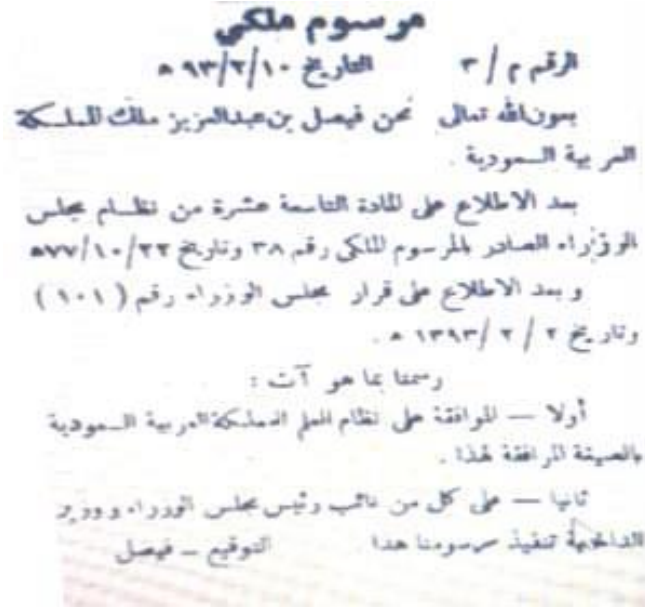 مرسوم ملكي
الرقم م / ٣ التاريخ ٩٣/٢/١٠ ه
بعون الله تعالى نحن فيصل بن عبدالعزيز ملك المملكة
العربية السعودية .
بعد الاطلاع على المادة التاسعة عشرة من نظام مجلس
الوزراء الصادر بالمرسوم الملكي رقم ٣٨ وتاريخ ٧٧/١٠/٢٢ه
و بعد الاطلاع على قرار مجلس الوزراء رقم ( ١٠١ )
وتاريخ ٢ / ٢ / ١٣٩٣ ه .
رسمنا بما هو آت :
أولا — الموافقة على نظام العلم للمملكة العربية السعودية
بالصيغة المرافقة لهذا .
ثانيا — على كل من نائب رئيس مجلس الوزراء ووزير
الداخلية تنفيذ مرسومنا هذا التوقيع — فيصل